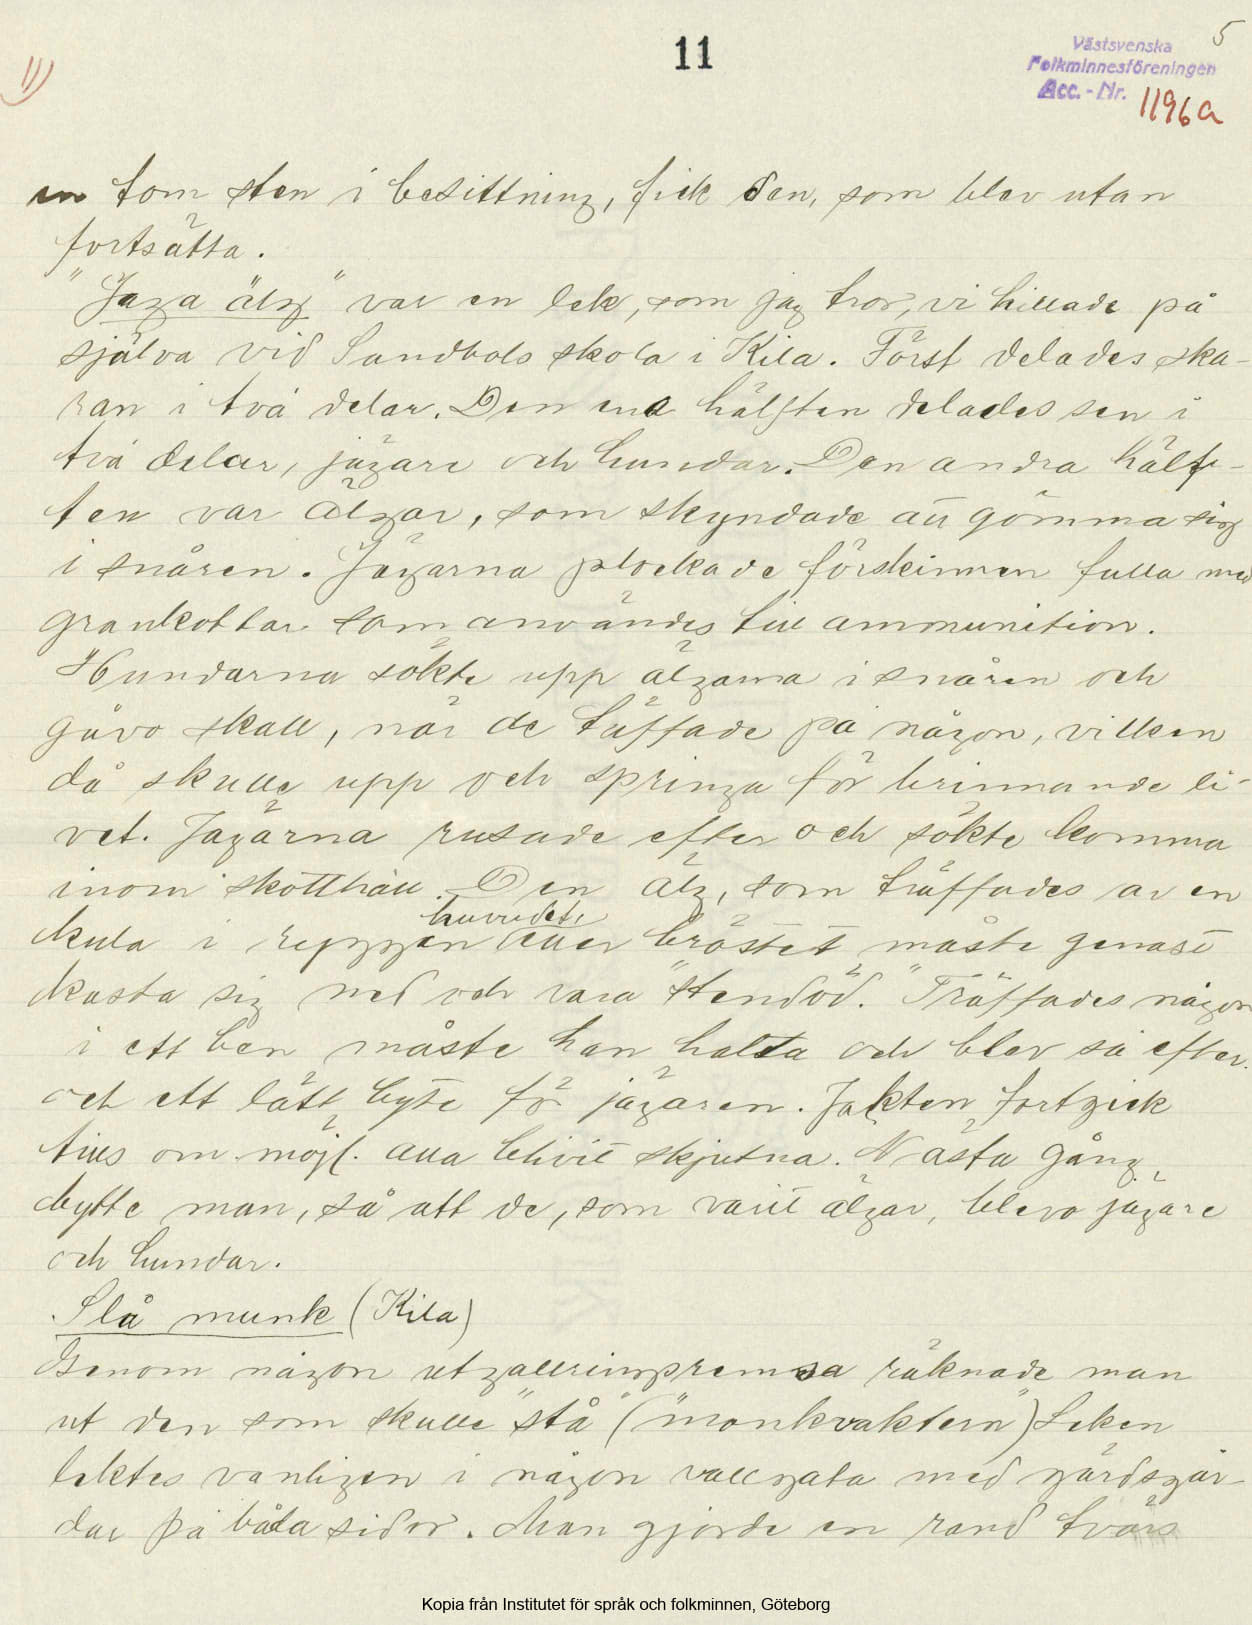 11
5
Västsvenska
Folkminnesföreningen
Acc. - Nr. 1196a
11)
en tom sten i besittning, fick den, som blev utan
fortsätta.
"Jaga älg" var en lek, som jag tror, vi hittade på
själva vid Sandbols skola i Kila. Först delades ska-
ran i två delar. Den ena hälften delades sen i
två delar, jägare och hundar. Den andra hälf-
ten var älgar, som skyndade att gömma sig
i snåren. Jägarna plockade förskinnen fulla med
grankottar som användes till ammunition.
Hundarna sökte upp älgarna i snåren och
gåvo skall, när de träffade på någon, vilken
då skulle upp och springa för brinnande li-
vet. Jägarna rusade efter och sökte komma
inom skotthåll. Den älg, som träffades av en
huvudet
kula i ryggen eller bröstet måste genast
kasta sig ned och vara "stendöd." Träffades någon
i ett ben måste han halta och blev så efter
och ett lätt byte för jägaren. Jakten fortgick
tills om möjl. alla blivit skjutna. Nästa gång
bytte man, så att de, som varit älgar, blevo jägare
och hundar.
Slå munk (Kila)
Genom någon utgallringsramsa räknade man
ut den som skulle "stå" ("monkvaktern") Leken
lektes vanligen i någon vallgata med gärdsgår-
dar på båda sidor. Man gjorde en rand tvärs
Kopia från Institutet för språk och folkminnen, Göteborg